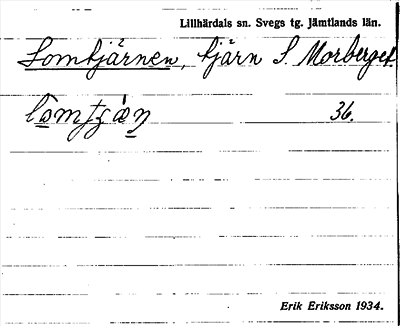 Lillhärdals sn. Svegs tg. jämtlands län.
Lomtjärnen, tjärn S. Morberget.
36.
Erik Eriksson 1934.